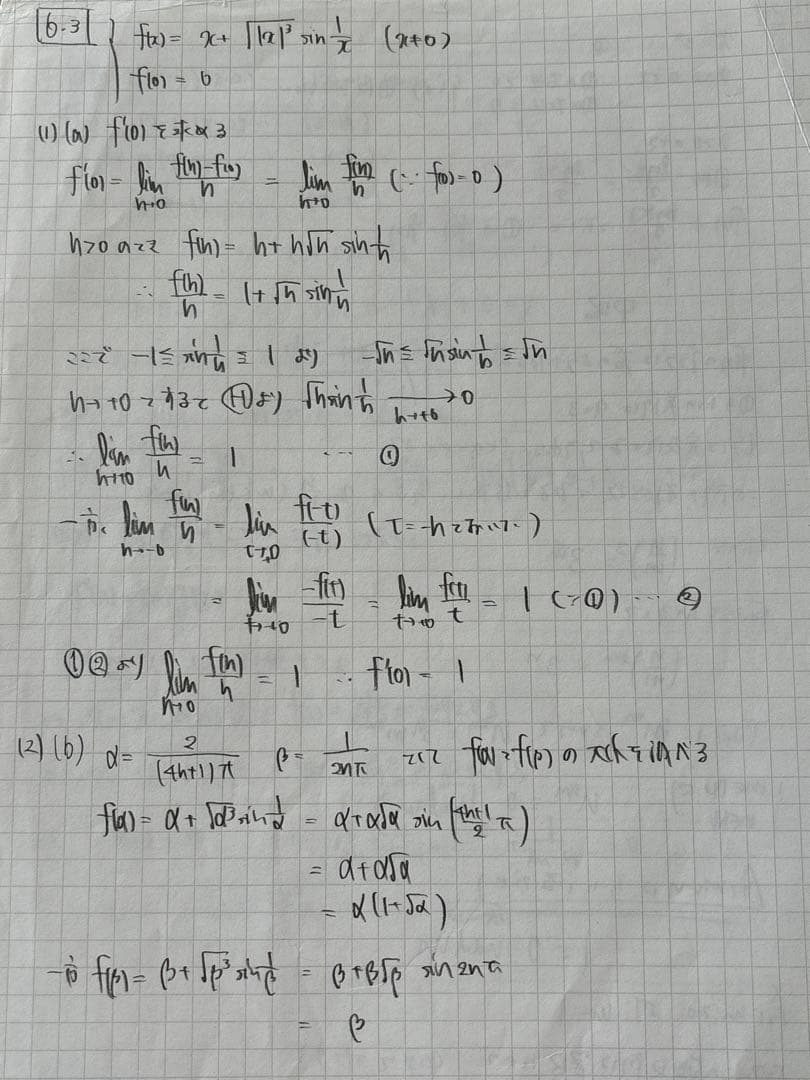 6.3 { f(x) = x + √|x|³ sin 1/x (x≠0)
f(0) = 0
(1)(a) f'(0)を求める
f'(0) = lim_{h→0} (f(h)-f(0))/h = lim_{h→0} f(h)/h (∵ f(0)=0)
h>0のとき f(h) = h + h√h sin 1/h
∴ f(h)/h = 1 + √h sin 1/h
ここで -1 ≦ sin 1/h ≦ 1 より -√h ≦ √h sin 1/h ≦ √h
h→+0 とすると より √h sin 1/h →_{h→+0} 0
∴ lim_{h→+0} f(h)/h = 1 … ①
一方、lim_{h→-0} f(h)/h = lim_{t→+0} f(-t)/(-t) (t=-hとおいた)
= lim_{t→+0} -f(t)/-t = lim_{t→+0} f(t)/t = 1 (∵①) … ②
①②より lim_{h→0} f(h)/h = 1 ∴ f'(0) = 1
(2)(b) α = 2/(4n+1)π β = 1/2nπ として f(α)とf(β)の大小を調べる
f(α) = α + √α³ sin 1/α = α + α√α sin((4n+1)/2 π)
= α + α√α
= α(1+√α)
一方 f(β) = β + √β³ sin 1/β = β + β√β sin 2nπ
= β